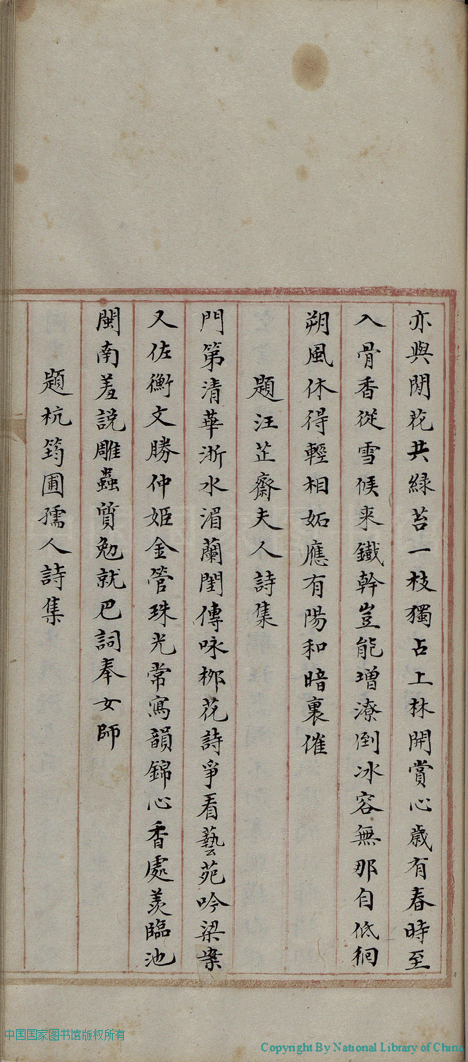 亦與閒花共綠苔一枝獨占上林開賞心歲有春時至
入骨香從雪候来鐵幹豈能增潦倒冰容無那自低徊
朔風休得輕相妬應有陽和暗裏催
題汪芷齋夫人詩集
門第清華浙水湄蘭閨傳咏栁花詩爭看藝苑吟梁案
又佐衡文勝仲姬金管珠光常寫韻錦心香處羡臨池
閩南羞說雕蟲質勉就巴詞奉女師
題杭筠圃孺人詩集
中国国家图书馆版权所有
Copyright By National Library of China